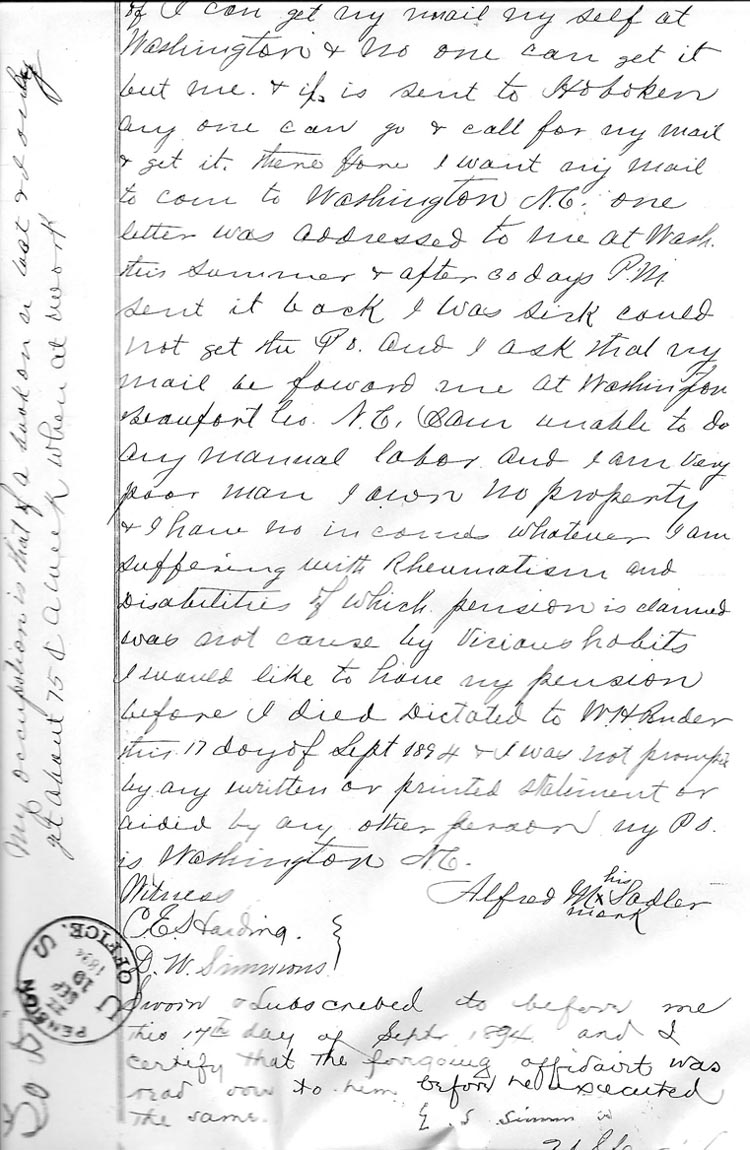 if I can get my mail my self at
Washington & no one can get it
but me. & if is sent to Hoboken
any one can go & call for my mail
& get it. therefore I want my mail
to com to Washington N.C. one
letter was addressed to me at Wash.
this summer & after 30 days P.M.
sent it back I was sick could
not get the P.o. and I ask that my
mail be foward me at Washington
Beaufort Co. N.C. I am unable to do
any manual labor and I am very
poor man I own no property
& I have no income whatever I am
suffering with Rheumatism and
Disabilities of which pension is claimed
was not cause by vicious habits
I would like to have my pension
before I died Dictated to W.H.
this 17 day of Sept 1894 & I was not
by any written or printed statement or
aided by any other person my P.o.
is Washington N.C.
Witness
Alfred M his x mark Sadler
C.E. Harding.
D.W. Simmons
Sworn & Subscrebed to before me
this 17th day of Septr 1894 and I
certify that the affidavit was
read over to him before he executed
the same.
E. S.
My occupation is that of a on a boat & only
get about 75 ¢ a week when at work
U.S. PENSION OFFICE.
SEP 19 1894